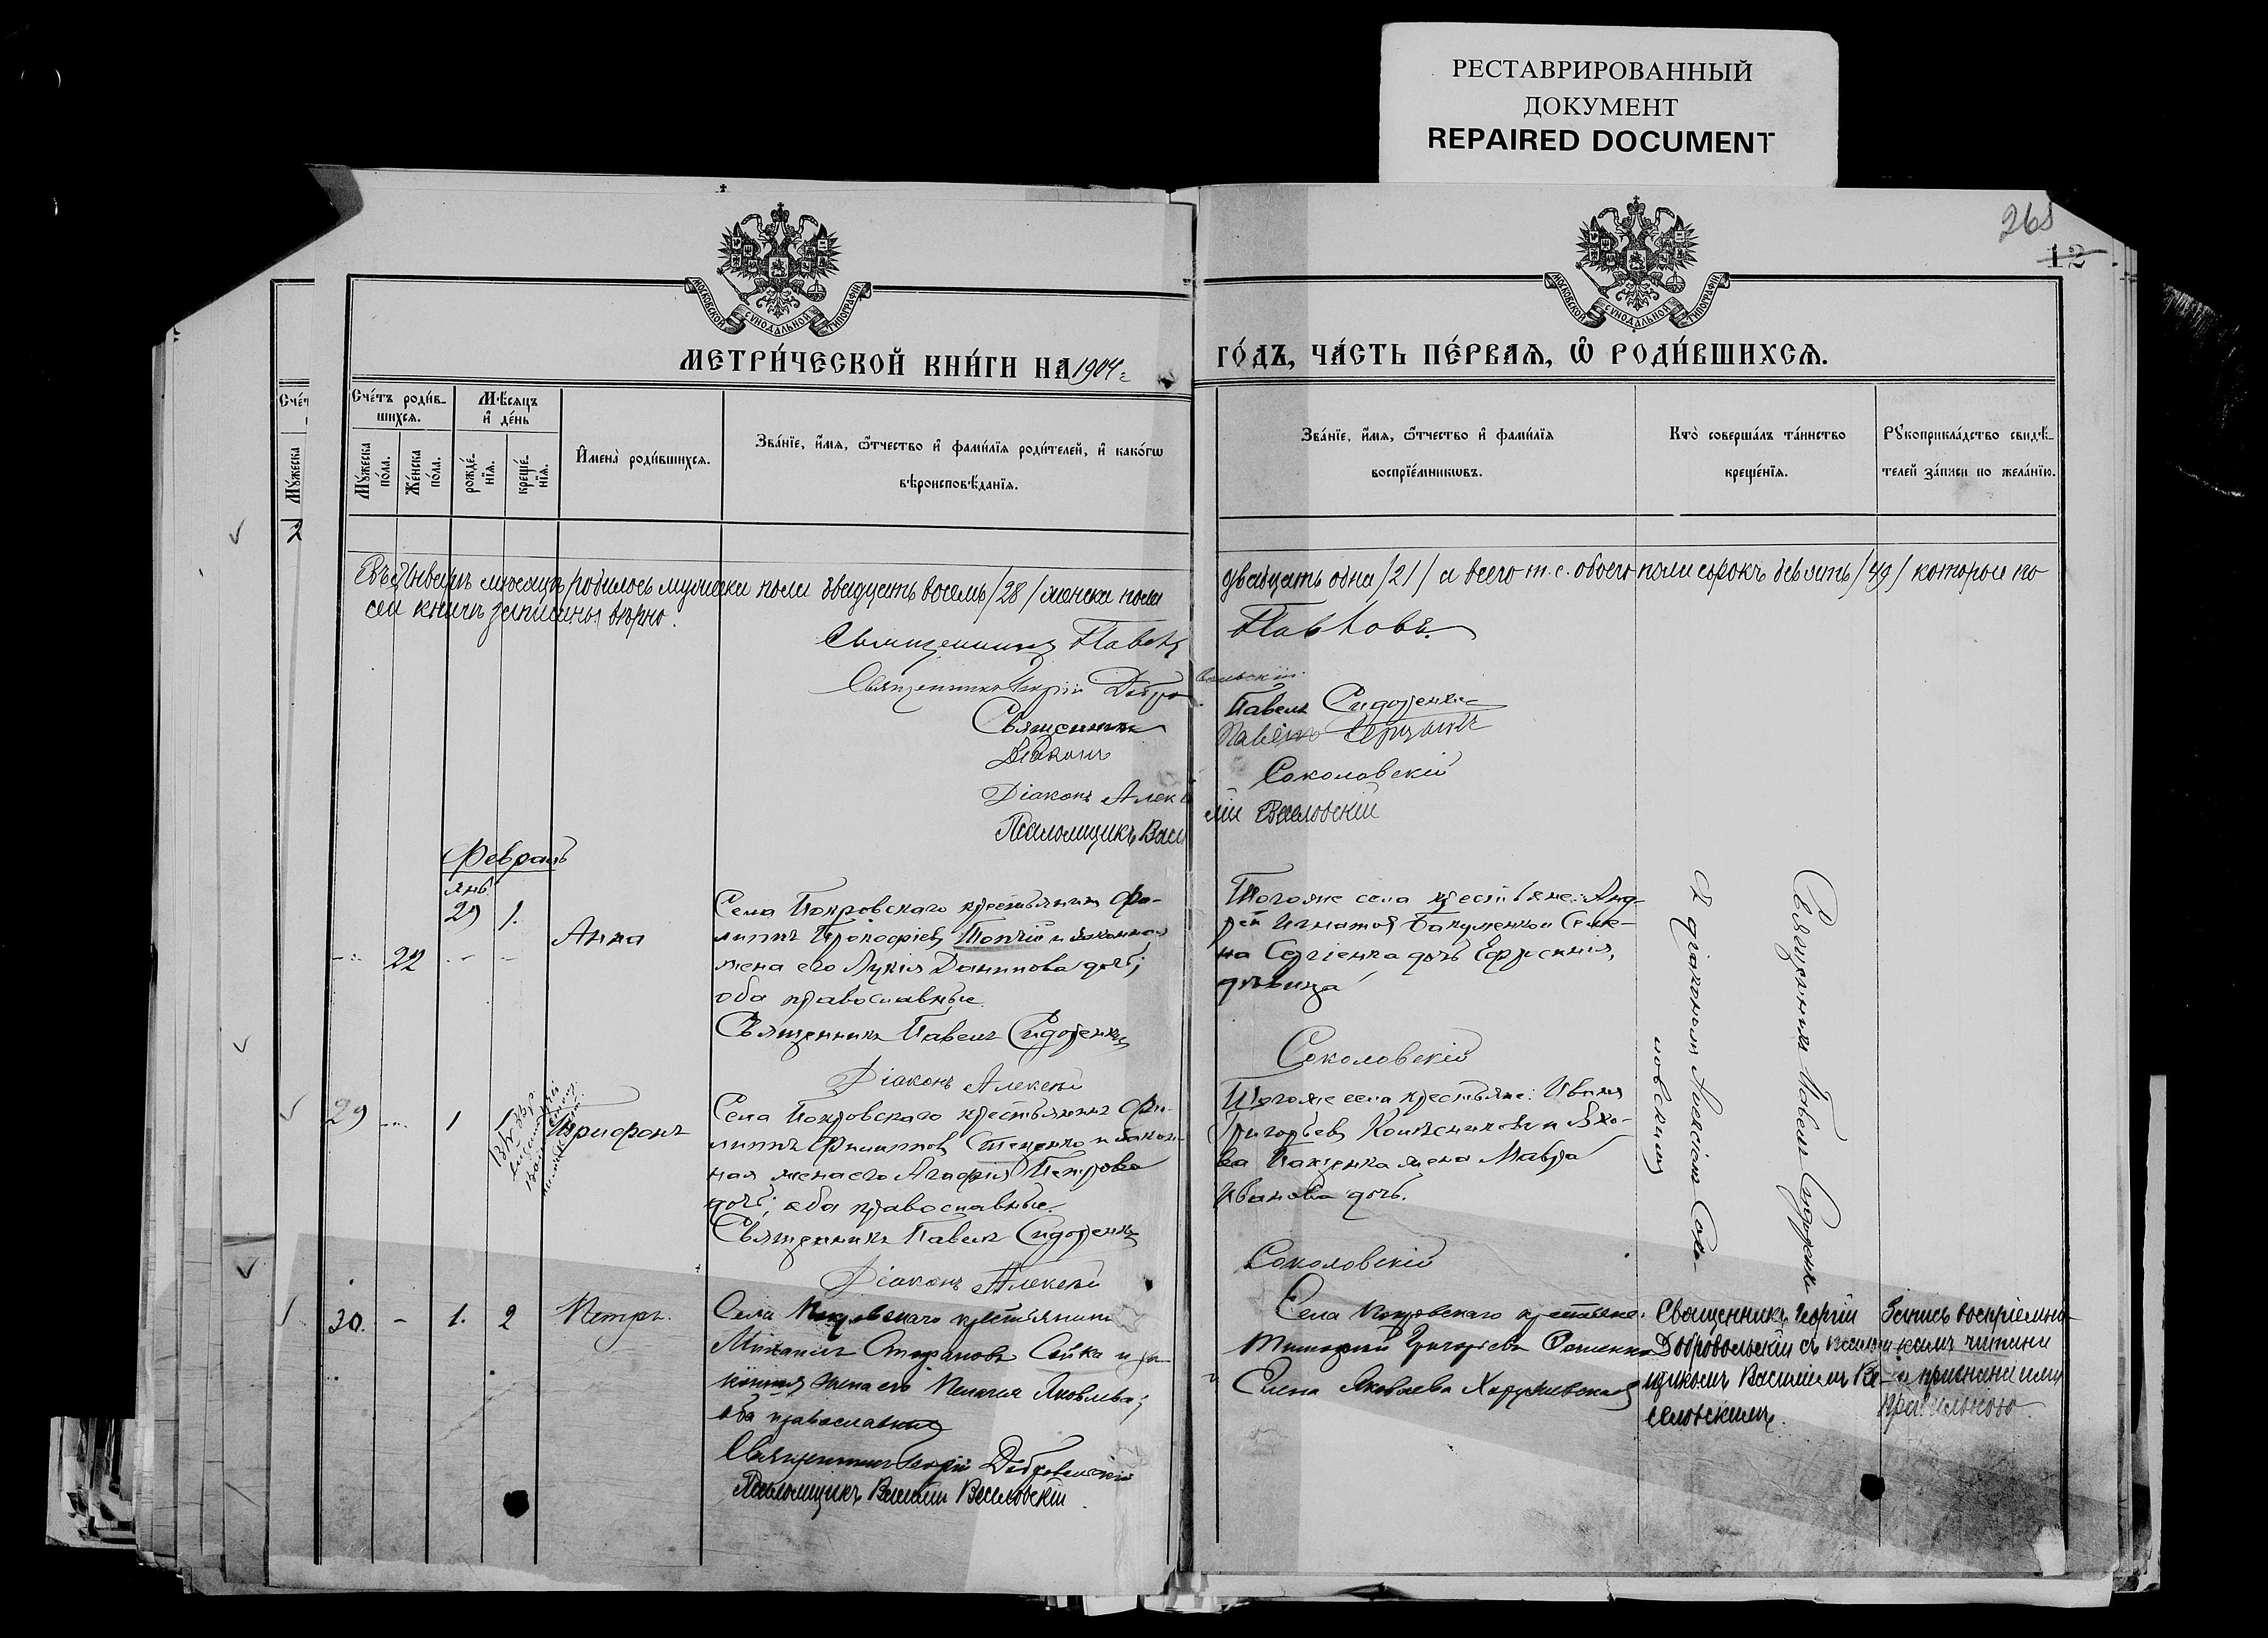 РЕСТАВРИРОВАННЫЙ
ДОКУМЕНТ
REPAIRED DOCUMENT
268
12
МОСКОВСКОЙ СѴНОДАЛЬНОЙ ТИПОГРАФІИ
МОСКОВСКОЙ СѴНОДАЛЬНОЙ ТИПОГРАФІИ
МЕТРИ́ЧЕСКОЙ КНИ́ГИ НА 1904
ГО́ДЪ, ЧА́СТЬ ПЕ́РВАѦ, Ѽ РОДИ́ВШИХСѦ.
Сче́т
Мꙋ́жеска
2
Сче́тъ роди́в-
шихсѧ.
Мꙋ́жеска по́ла.
Же́нска по́ла.
Мѣ́сѧцъ и҆ де́нь
рожде́-нїѧ.
креще́-нїѧ.
И҆мена̀ роди́вшихсѧ.
Зва́нїе, и҆́мѧ, ѻ҆́тчество и҆ фами́лїѧ роди́телей, и҆ како́гѡ
вѣроисповѣ́данїѧ.
Зва́нїе, и҆́мѧ, ѻ҆́тчество и҆ фами́лїѧ
воспрїе́мникѡвъ.
Кто̀ соверша́лъ та́инство
креще́нїѧ.
Рꙋкоприкла́дство свидѣ́-
телей за́писи по жела́нїю.
мѣсяцѣ родилось мужска пола двадцать восемь /28/ женска пола
двадцать одна /21/ а всего т. с. обоего пола сорокъ девять /49/ которые по
сей книгѣ записаны вѣрно.
Священникъ Павелъ
Павловъ.
Священникъ Георгій Добро
вольскій
Священникъ
Павелъ Сидоренко
Діаконъ
Павелъ
Діаконъ Алек
Соколовскій
Псаломщикъ Васи
лій Веселовскій
Февраль
янв
22 29 1. Анна
Села Покровскаго крестьянинъ Фи-
липпъ Прокофіевъ Топчій и законная
жена его Лукія Даниилова дочь;
оба православные.
Священникъ Павелъ Сидоренко
Діаконъ Алексѣй
Тогоже села крестьяне: Анд-
рей Игнатовъ Бакуменко и Семе-
на Сергіенка дочь Ефросинія,
дѣвица
Соколовскій
Священникъ Павелъ Сидоренко
съ діакономъ Алексіемъ Соко-
ловскимъ
29 1 Трифонъ
Села Покровскаго крестьянинъ Фи-
липпъ Филипповъ Стеценко и закон-
ная жена его Агафія Петрова
дочь; оба православные.
Священникъ Павелъ Сидоренко
Діаконъ Алексѣй
Тогоже села крестьяне: Иванъ
Григорьевъ Колѣсниковъ и Яко-
ва Пащенка жена Мавра
Иванова дочь.
Соколовскій
30. - 1. 2 Петръ.
Села Покровскаго крестьянинъ
Михаилъ Стефановъ Сайка и за-
конная жена его Пелагія Яковлева;
оба православные
Священникъ Георгій Добровольскій
Псаломщикъ Василій Веселовскій.
Села Покровскаго крестьяне:
Тимофей Григорьевъ
Елена Яковлева
Священникъ Георгій
Добровольскій съ псалом-
щикомъ Василіемъ Ве-
селовскимъ.
Запись воспріемни-
камъ читана
и признана ими
правильною